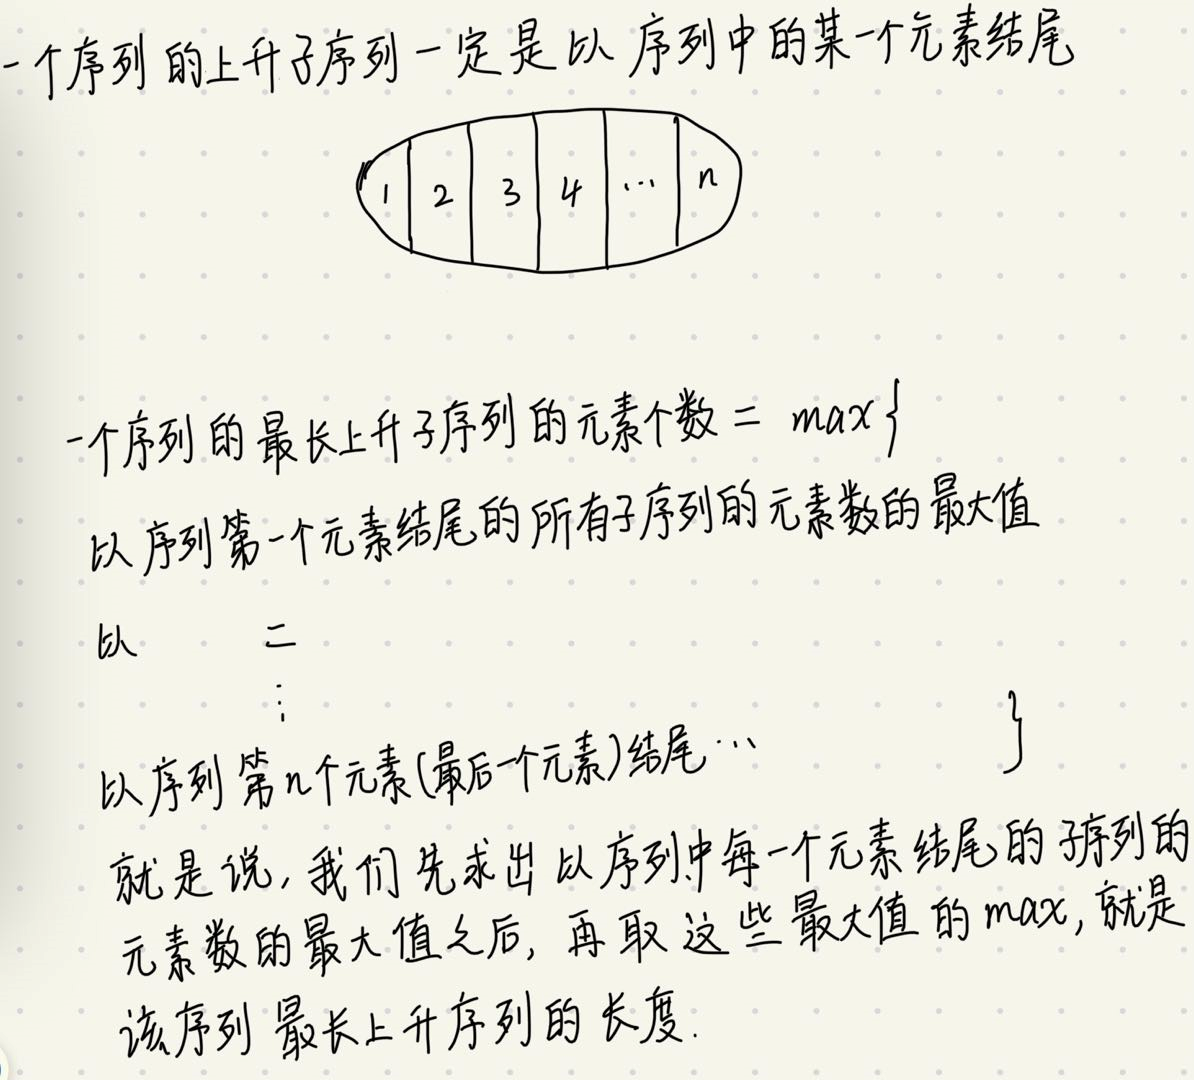 一个序列的上升子序列一定是以序列中的某一个元素结尾
1 2 3 4 … n
一个序列的最长上升子序列的元素个数 = max{
以序列第一个元素结尾的所有子序列的元素数的最大值
以 二
⋮
以序列第n个元素(最后一个元素)结尾…
}
就是说,我们先求出以序列中每一个元素结尾的子序列的
元素数的最大值之后,再取这些最大值的max,就是
该序列最长上升序列的长度.